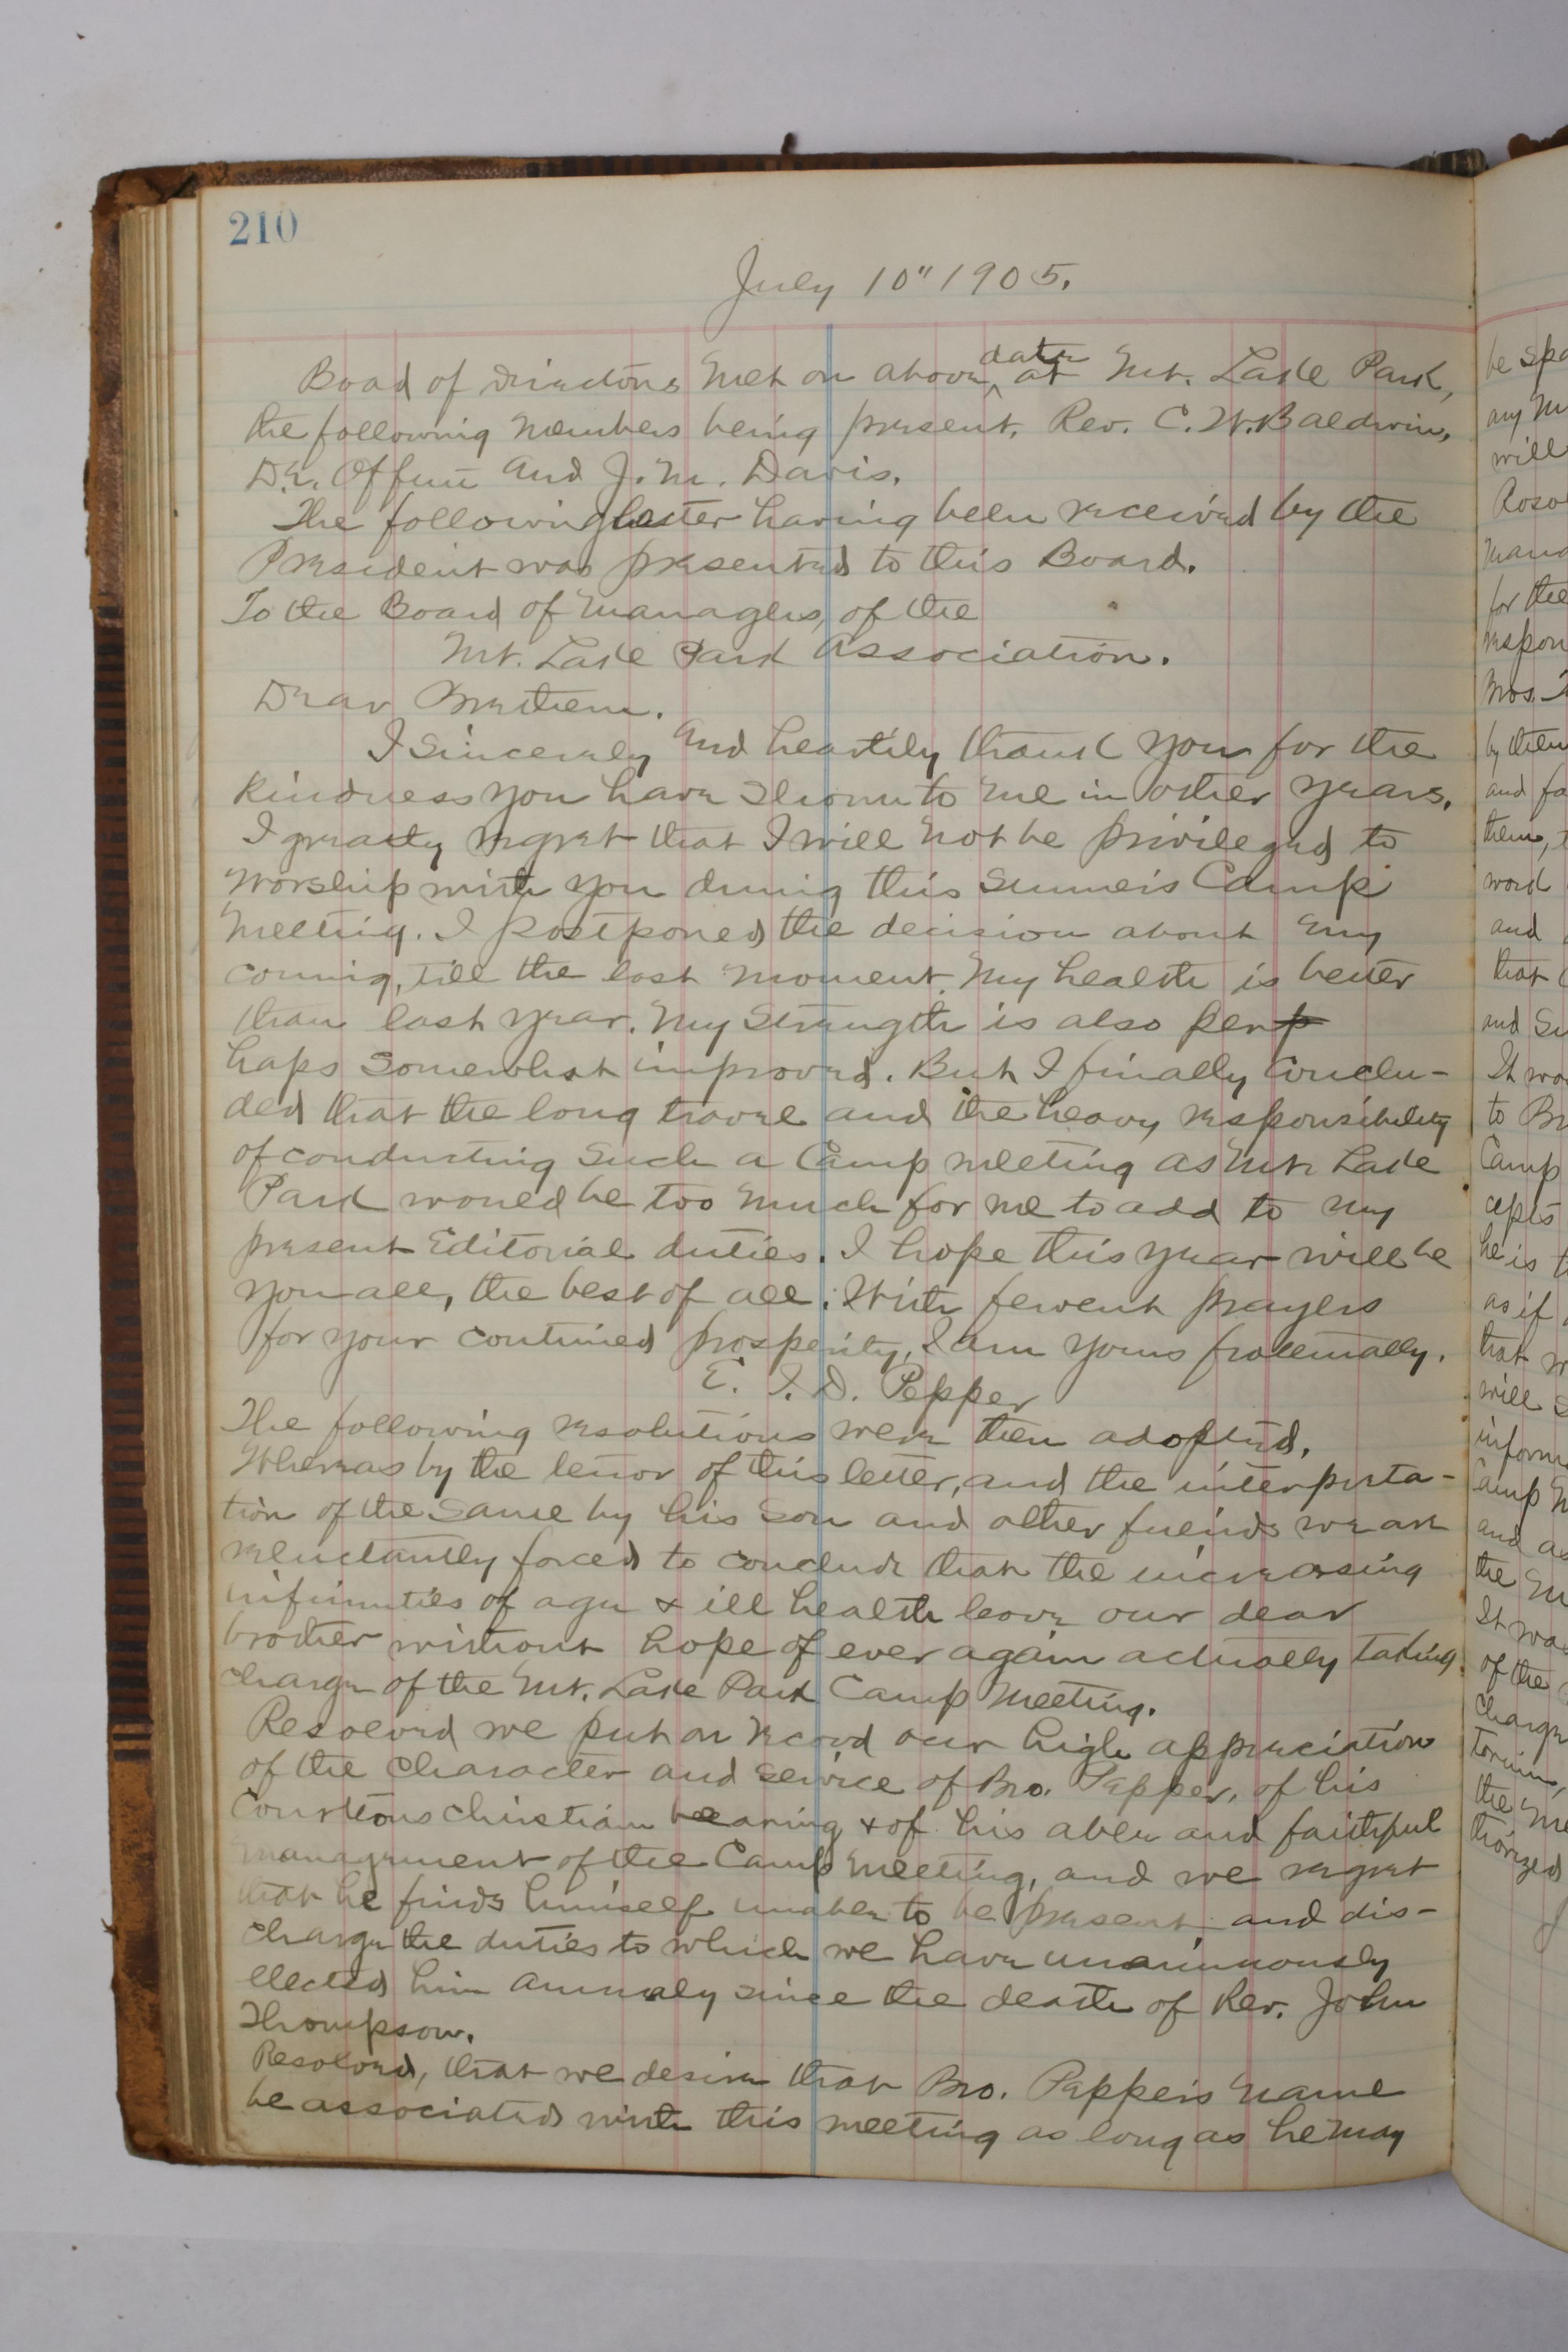 210
July 10" 1905.
Boad of Directors met on above date at Mt. Lake Park,
the following members being present, Rev. C. W. Baldwin,
D.E. Offutt and J. M. Davis.
The following letter having been received by the
President was presented to this Board.
To the Board of Managers, of the
Mt. Lake Park Association.
Dear Brethern.
I sincerely and heartily thank you for the
kindness you have shown to me in other years.
I greatly regret that I will not be privileged to
worship with you during this summers Camp
Meeting. I postponed the decision about my
coming, till the last moment. My health is better
than last year. My strength is also perp
haps somewhat improved. But I finally conclu-
ded that the long travel and the heavy responsibility
of conducting such a Camp meeting as Mt. Lake
Park would be too much for me to add to my
present Editorial duties. I hope this year will be
you all, the best of all. With fervent prayers
for your continued prosperity, I am yours fraternally.
E. I. D. Pepper
The following resolutions were then adopted.
Whereas by the tenor of this letter, and the interpreta-
tion of the same by his son and other friends we are
reluctantly forced to conclude that the increasing
infirmities of age & ill health leave our dear
brother without hope of ever again actually taking
charge of the Mt. Lake Park Camp Meeting.
Resolved we put on record our high appreciation
of the character and service of Bro. Pepper, of his
Courteous Christian bearing & of his able and faithful
management of the Camp Meeting, and we regret
that he finds himself unable to be present and dis-
charge the duties to which we have unanimously
elected him annualy since the death of Rev. John
Thompson.
Resolved, that we desire that Bro. Peppers name
be associated with this meeting as long as he may
be spa
any m
will
Roso
mana
for the
respon
Mos.
by them
and fa
them, t
word
and
that
and su
It wa
to Br
Camp
cepts
he is t
as if
that w
will s
inform
Camp M
and as
the M
It was
of the
charge
the Me
thorized